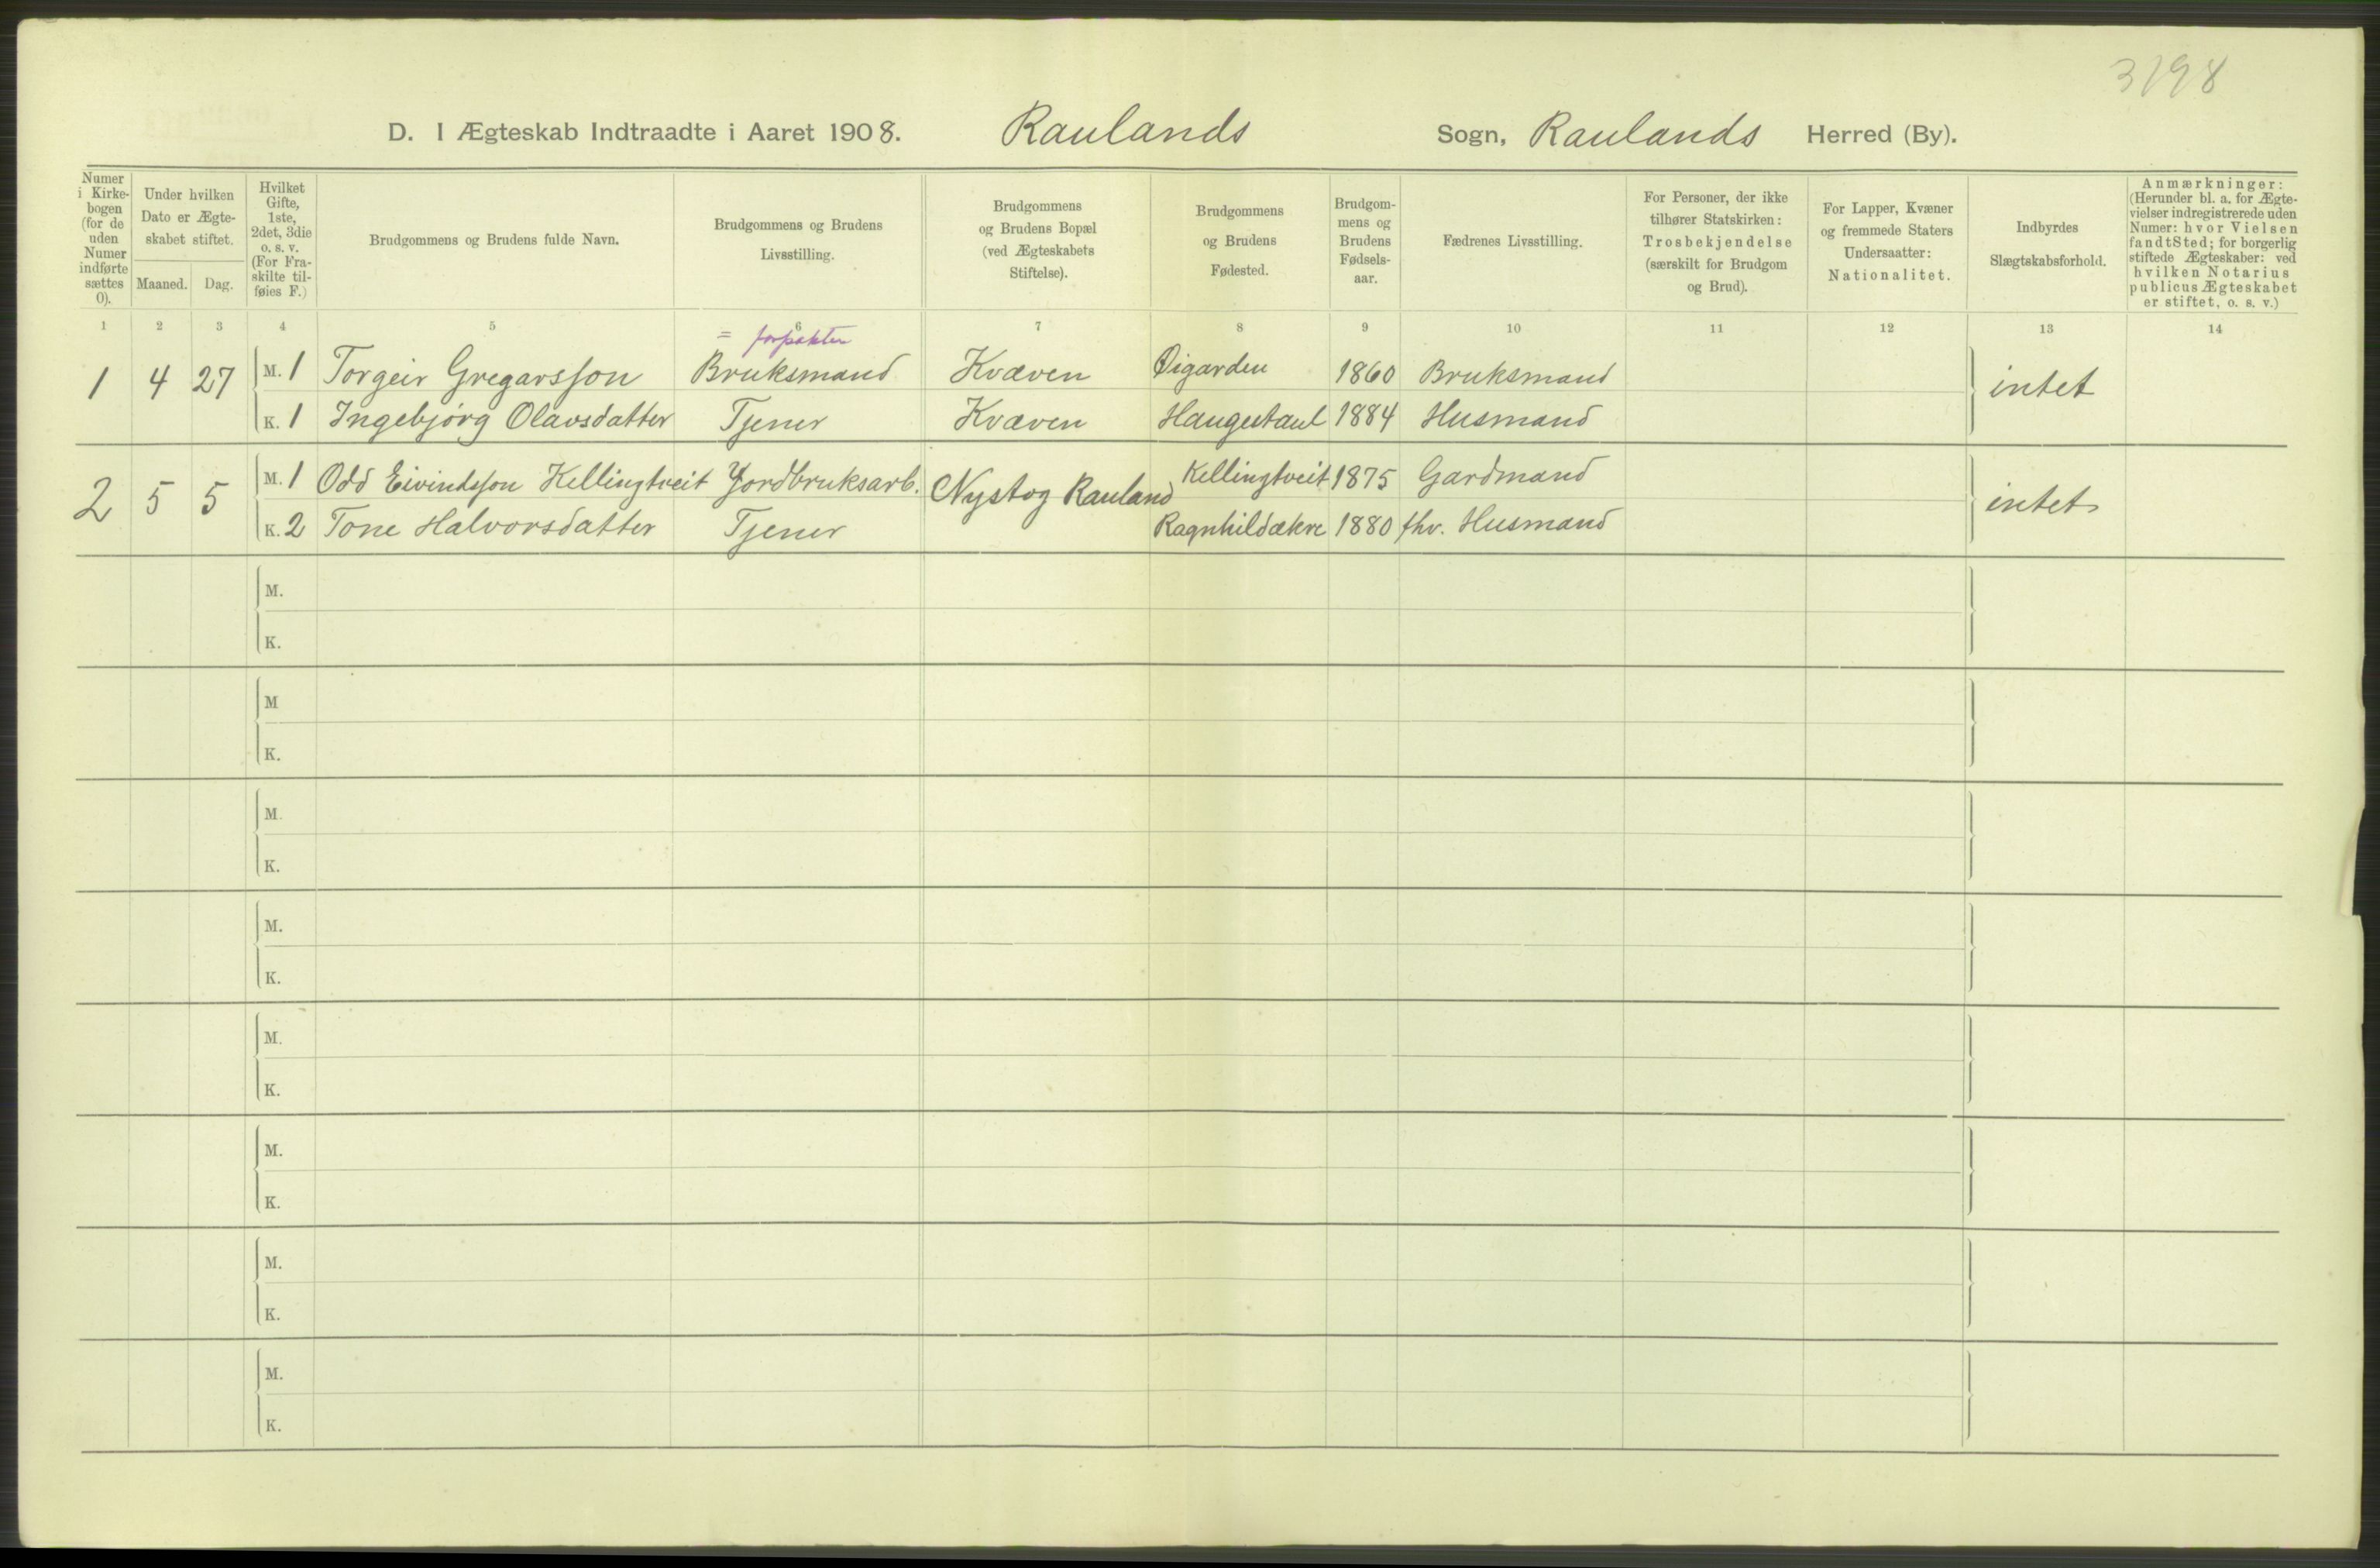 3198
D. I Ægteskab Indtraadte i Aaret 1908. Raulands Sogn, Raulands Herred (By).
Numer i Kirkebogen (for de uden Numer indførte sættes 0).
Under hvilken Dato er Ægteskabet stiftet.
Maaned. Dag.
Hvilket Gifte, 1ste, 2det, 3die o. s. v. (For Fraskilte tilføies F.)
Brudgommens og Brudens fulde Navn.
Brudgommens og Brudens Livsstilling.
Brudgommens og Brudens Bopæl (ved Ægteskabets Stiftelse).
Brudgommens og Brudens Fødested.
Brudgommens og Brudens Fødselsaar.
Fædrenes Livsstilling.
For Personer, der ikke tilhører Statskirken: Trosbekjendelse (særskilt for Brudgom og Brud).
For Lapper, Kvæner og fremmede Staters Undersaatter: Nationalitet.
Indbyrdes Slægtskabsforhold.
Anmærkninger: (Herunder bl. a. for Ægtevielser indregistrerede uden Numer: hvor Vielsen fandt Sted; for borgerlig stiftede Ægteskaber: ved hvilken Notarius publicus Ægteskabet er stiftet, o. s. v.)
1 2 3 4 5 6 7 8 9 10 11 12 13 14
= forpakter
1 4 27 M. 1 Torgeir Gregarsson Bruksmand Kvæven Øigarden 1860 Bruksmand intet
K. 1 Ingebjørg Olavsdatter Tjener Kvæven Haugestaul 1884 Husmand
2 5 5 M. 1 Odd Eivindsson Kellingtveit Jordbruksarb. Nystog Rauland Kellingtveit 1875 Gardmand intet
K. 2 Tone Halvorsdatter Tjener Ragnhildækre 1880 fhv. Husmand
M.
K.
M
K.
M.
K.
M.
K.
M.
K.
M.
K.
M.
K.
M.
K.